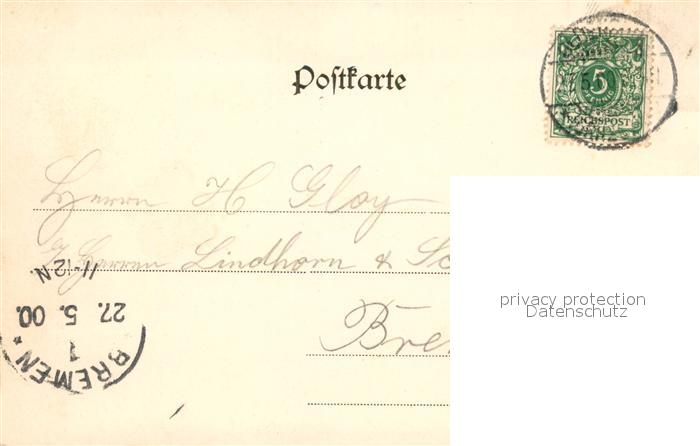 Postkarte
5
REICHSPOST
Herrn H Gloy
Herren Lindhorn & So
Bre
11-12 N.
27. 5. 00.
1
BREMEN *
privacy protection
Datenschutz